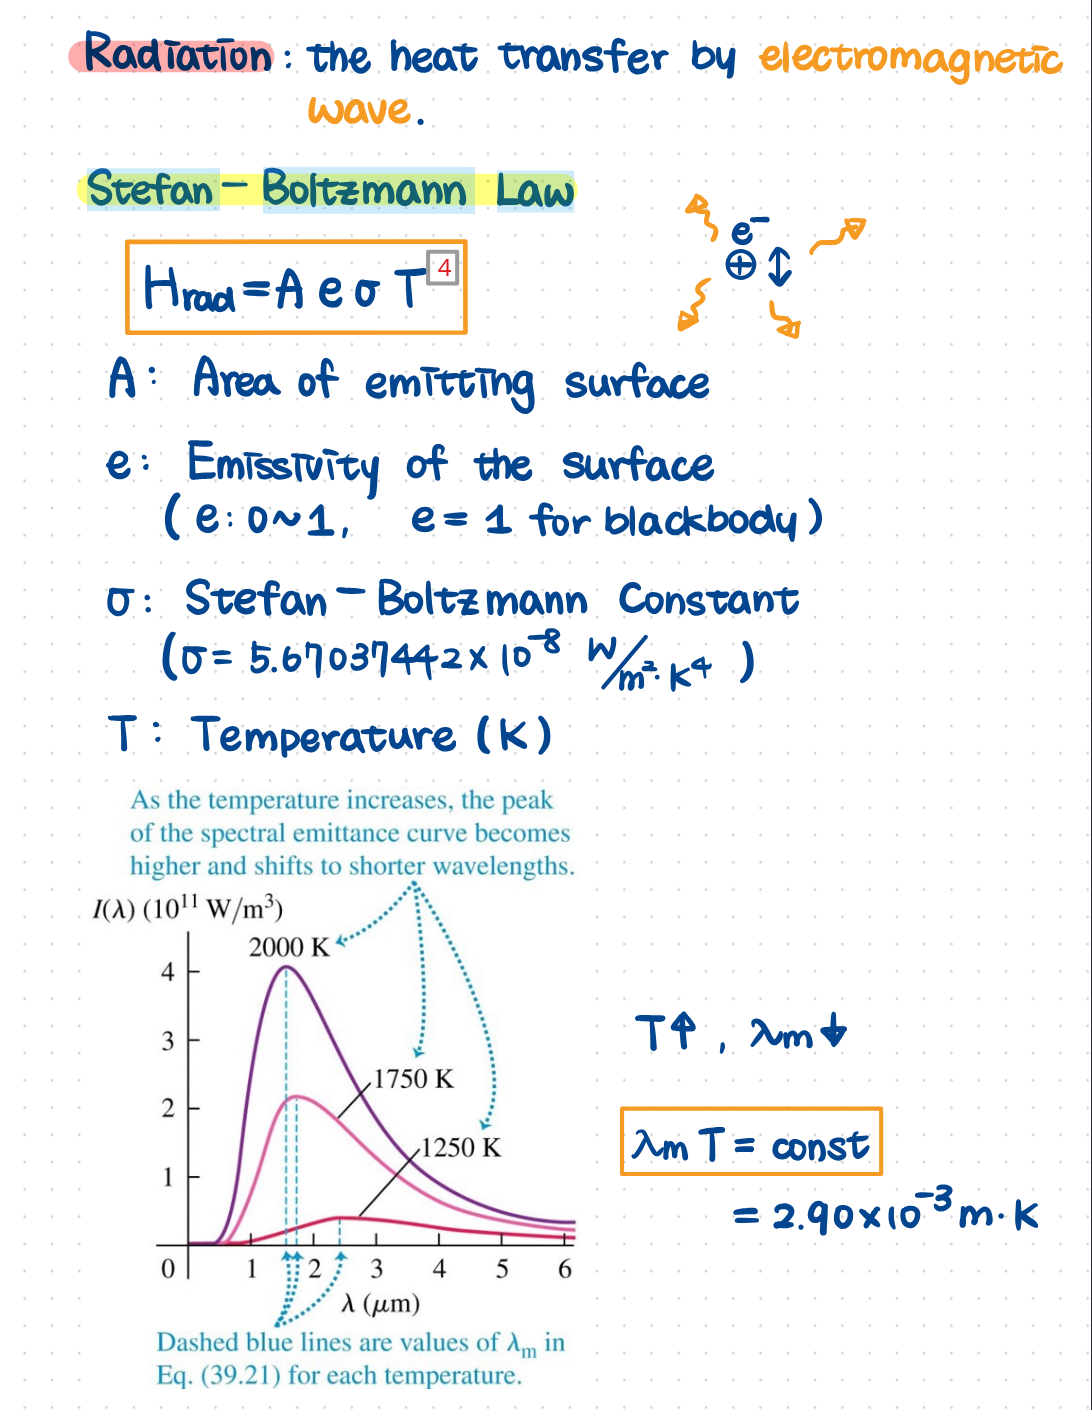 Radiation: the heat transfer by electromagnetic
wave.
Stefan-Boltzmann Law
e⁻
⊕ ↕
Hrad = A e σ T⁴
A: Area of emitting surface
e: Emissivity of the surface
(e: 0~1, e = 1 for blackbody)
σ: Stefan-Boltzmann Constant
(σ = 5.67037442 x 10⁻⁸ W/m²·K⁴)
T: Temperature (K)
As the temperature increases, the peak
of the spectral emittance curve becomes
higher and shifts to shorter wavelengths.
I(λ) (10¹¹ W/m³)
2000 K
4
3
T↑, λm↓
1750 K
2
1250 K
λm T = const
1
= 2.90x10⁻³ m·K
0 1 2 3 4 5 6
λ (μm)
Dashed blue lines are values of λm in
Eq. (39.21) for each temperature.